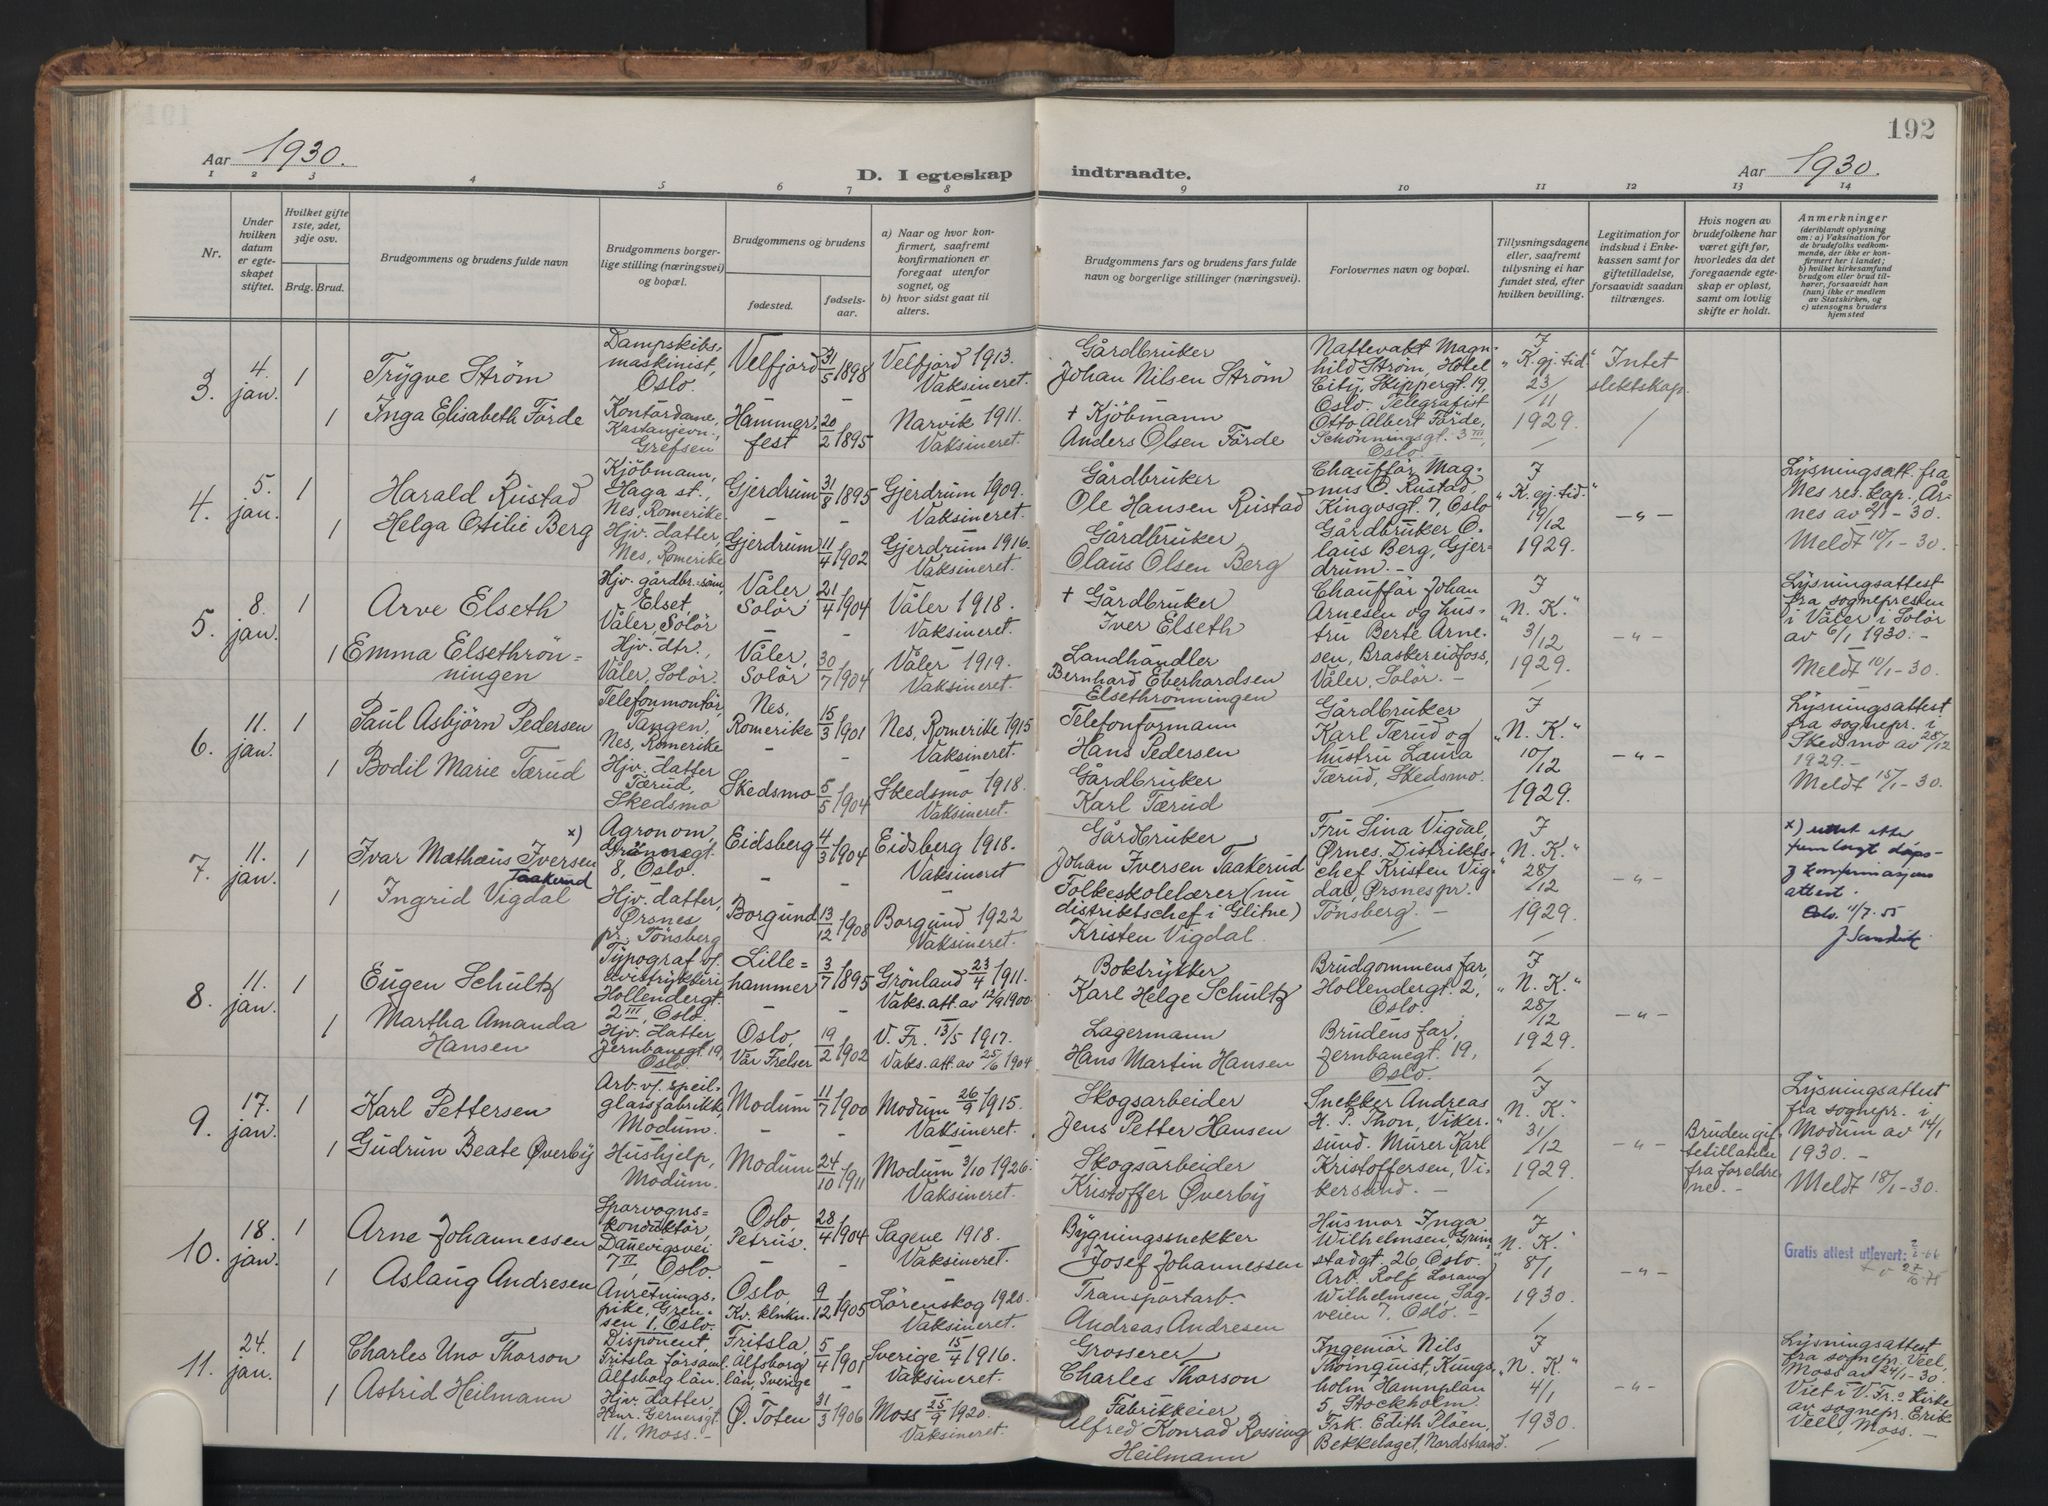 192
Aar 1930.
D. I egteskap indtraadte.
Aar 1930.
1 2 3 4 5 6 7 8 9 10 11 12 13 14
Nr.
Under hvilken datum er egteskapet stiftet.
Hvilket gifte 1ste, 2det, 3dje osv.
Brdg. Brud.
Brudgommens og brudens fulde navn
Brudgommens borgerlige stilling (næringsvei) og bopæl.
Brudgommens og brudens
fødested.
fødselsaar.
a) Naar og hvor konfirmert, saafremt konfirmationen er foregaat utenfor sognet, og
b) hvor sidst gaat til alters.
Brudgommens fars og brudens fars fulde navn og borgerlige stillinger (næringsvei).
Forlovernes navn og bopæl.
Tillysningsdagene eller, saafremt tillysning ei har fundet sted, efter hvilken bevilling.
Legitimation for indskud i Enkekassen samt for giftetilladelse, forsaavidt saadan tiltrænges.
Hvis nogen av brudefolkene har været gift før, hvorledes da det foregaaende egteskap er opløst, samt om lovlig skifte er holdt.
Anmerkninger
(deriblandt oplysning om: a) Vaksination for de brudefolks vedkommende, der ikke er konfirmert her i landet; b) hvilket kirkesamfund brudgom eller brud tilhører, forsaavidt han (hun) ikke er medlem av Statskirken, og c) utensogns bruders hjemsted
3.
4. jan.
1
Trygve Strøm
Dampskibsmaskinist, Oslo.
Velfjord
31/5 1898
Velfjord 1913.
Vaksineret.
Gårdbruker
Johan Nilsen Strøm
Nattevakt Magnhild Strøm, Hotel City, Skippergt. 19, Oslo. Telegrafist Otto Albert Förde, Schönningsgt. 3 III, Oslo.
F
"K. gj. tid."
23/11
1929.
Intet slektskap.
1
Inga Elisabeth Förde
Kontordame, Kastanjevn., Grefsen
Hammerfest
20/2 1895
Narvik 1911.
Vaksineret.
+ Kjöbmann
Anders Olsen Förde
4.
5. jan.
1
Harald Rustad
Kjöbmann, Haga st., Nes, Romerike.
Gjerdrum
31/8 1895
Gjerdrum 1909.
Vaksineret.
Gårdbruker
Ole Hansen Rustad
Chaufför Magnus O. Rustad Kingosgt. 7, Oslo
Gårdbruker Olaus Berg, Gjerdrum. -
F
"K. gj. tid."
19/12
1929.
- " -
Lysningsatt. fra Nes res. kap. Årnes av 2/1 - 30.
Meldt 10/1 - 30.
1
Helga Otilie Berg
Hjv. datter, Nes, Romerike
Gjerdrum
11/4 1902
Gjerdrum 1916.
Vaksineret.
Gårdbruker
Olaus Olsen Berg
5.
8. jan.
1
Arve Elseth
Hjv. gårdbr. sön, Elset, Våler, Solör
Våler Solör
21/4 1904
Våler 1918.
Vaksineret.
+ Gårdbruker
Iver Elseth
Chaufför Johan Arnesen og hustru Berte Arnesen, Braskereidfoss, Våler, Solör. -
F
"N. K."
3/12
1929.
- " -
Lysningsattest fra sognepresten i Våler i Solör av 6/1 1930. -
Meldt 10/1 - 30.
1
Emma Elsethrönningen
Hjv. dtr., Våler, Solör.
Våler, Solör
30/7 1904
Våler 1919.
Vaksineret.
Landhandler
Bernhard Eberhardsen Elsethrönningen
6.
11. jan.
1
Paul Asbjörn Pedersen
Telefonmontör, Tangen, Nes, Romerike
Nes, Romerike
15/3 1901
Nes, Romerike 1915
Vaksineret.
Telefonformann
Hans Pedersen
Gårdbruker Karl Tærud og hustru Laura Tærud, Skedsmo.
F
"N. K."
10/12
1929.
- " -
Lysningsattest fra sognepr. i Skedsmo av 28/12 1929. -
Meldt 15/1 - 30.
1
Bodil Marie Tærud
Hjv. datter Tærud, Skedsmo
Skedsmo
5/5 1904
Skedsmo 1918.
Vaksineret.
Gårdbruker
Karl Tærud
7.
11. jan.
1
Ivar Mathæus Iversen x)
Taakerud
Agronom, Grönnegt. 8, Oslo.
Eidsberg
4/3 1904
Eidsberg 1918.
Vaksineret
Gårdbruker
Johan Iversen Taakerud
Fru Sina Vigdal, Ørnes. Distriktschef Kristen Vigdal, Ørsnes pr. Tönsberg. -
F
"N. K."
28/12
1929.
- " -
x) rettet etter fremlagt dåps- og konfirmasjons attest.
Oslo 11/7. 55
1
Ingrid Vigdal
Hjv. datter, Ørsnes pr. Tönsberg
Borgund
13/12 1908
Borgund 1922
Vaksineret.
Folkeskolelærer (nu distriktschef i Glitne)
Kristen Vigdal.
8.
11. jan.
1
Eugen Schultz
Typograf v/ avistrykkeri Hollendergt. 2 III, Oslo.
Lillehammer
3/7 1895
Grönland 23/4 1911.
Vaks. att. av 12/9 1900.
Boktrykker
Karl Helge Schultz
Brudgommens far, Hollendergt. 2, Oslo.
F
"N. K."
28/12
1929.
- " -
1
Martha Amanda Hansen
Hjv. datter Jernbanegt. 19, Oslo.
Oslo, Vår Frelser
19/2 1902
V. Fr. 13/5 1917.
Vaks. att. av 25/6 1904
Lagermann
Hans Martin Hansen
Brudens far, Jernbanegt. 19, Oslo.
9.
17. jan.
1
Karl Pettersen
Arb. v/ speilglassfabrikk, Modum.
Modum
11/7 1900
Modum 26/9 1915.
Vaksineret.
Skogsarbeider
Jens Petter Hansen
Snekker Andreas H. P. Thon, Vikersund. Murer Karl Kristoffersen, Vikersund. -
F
"N. K."
31/12
1929.
- " -
Bruden giftetillatelse fra foreldrene. -
Lysningsattest fra sognepr. i Modum av 14/1 1930. -
Meldt 18/1 - 30.
1
Gudrun Beate Øverby
Hushjelp, Modum.
Modum
24/10 1911
Modum 3/10 1926.
Vaksineret.
Skogsarbeider
Kristoffer Øverby
10.
18. jan.
1
Arne Johannessen
Sporvognskonduktör, Danevigsvei 7 II, Oslo.
Oslo, Petrus.
28/4 1904
Sagene 1918.
Vaksineret.
Bygningssnekker
Josef Johannessen
Husmor Inga Wilhelmsen, Grimstadgt. 26, Oslo.
Arb. Rolf Lorang Wilhelmsen, Sagveien 7, Oslo. -
F
"N. K."
8/1
1930.
- " -
Gratis attest utlevert:
1
Aslaug Andresen
Anretningspike, Grensen 1, Oslo.
Oslo, Kv. klinkn.
9/12 1905
Lörenskog 1920.
Vaksineret.
Transportarb.
Andreas Andresen
11.
24. jan.
1
Charles Uno Thorson
Disponent, Fritsla församl. Älfsborg län.
Fritsla, Älfsborg län, Sverige
5/4 1901
Sverige 15/4 1916.
Vaksineret.
Grosserer
Charles Thorson
Ingeniör Nils Thörnquist, Kungsholm Hamnplan 5, Stockholm.
Frk. Edith Plöen, Bekkelaget, Nordstrand.
F
"N. K."
4/1
1930.
- " -
Lysningsattest fra sognepr. Veel, Moss av 24/1 - 30. Viet i V. Fr.s kirke av sognepr. Erik Veel, Moss. -
1
Astrid Heilmann
Hjv. datter, Henr. Gernersgt. 11, Moss. -
Ø. Toten
31/3 1906
Moss 25/9 1920.
Vaksineret.
Fabrikkeier
Alfred Konrad Rossing Heilmann